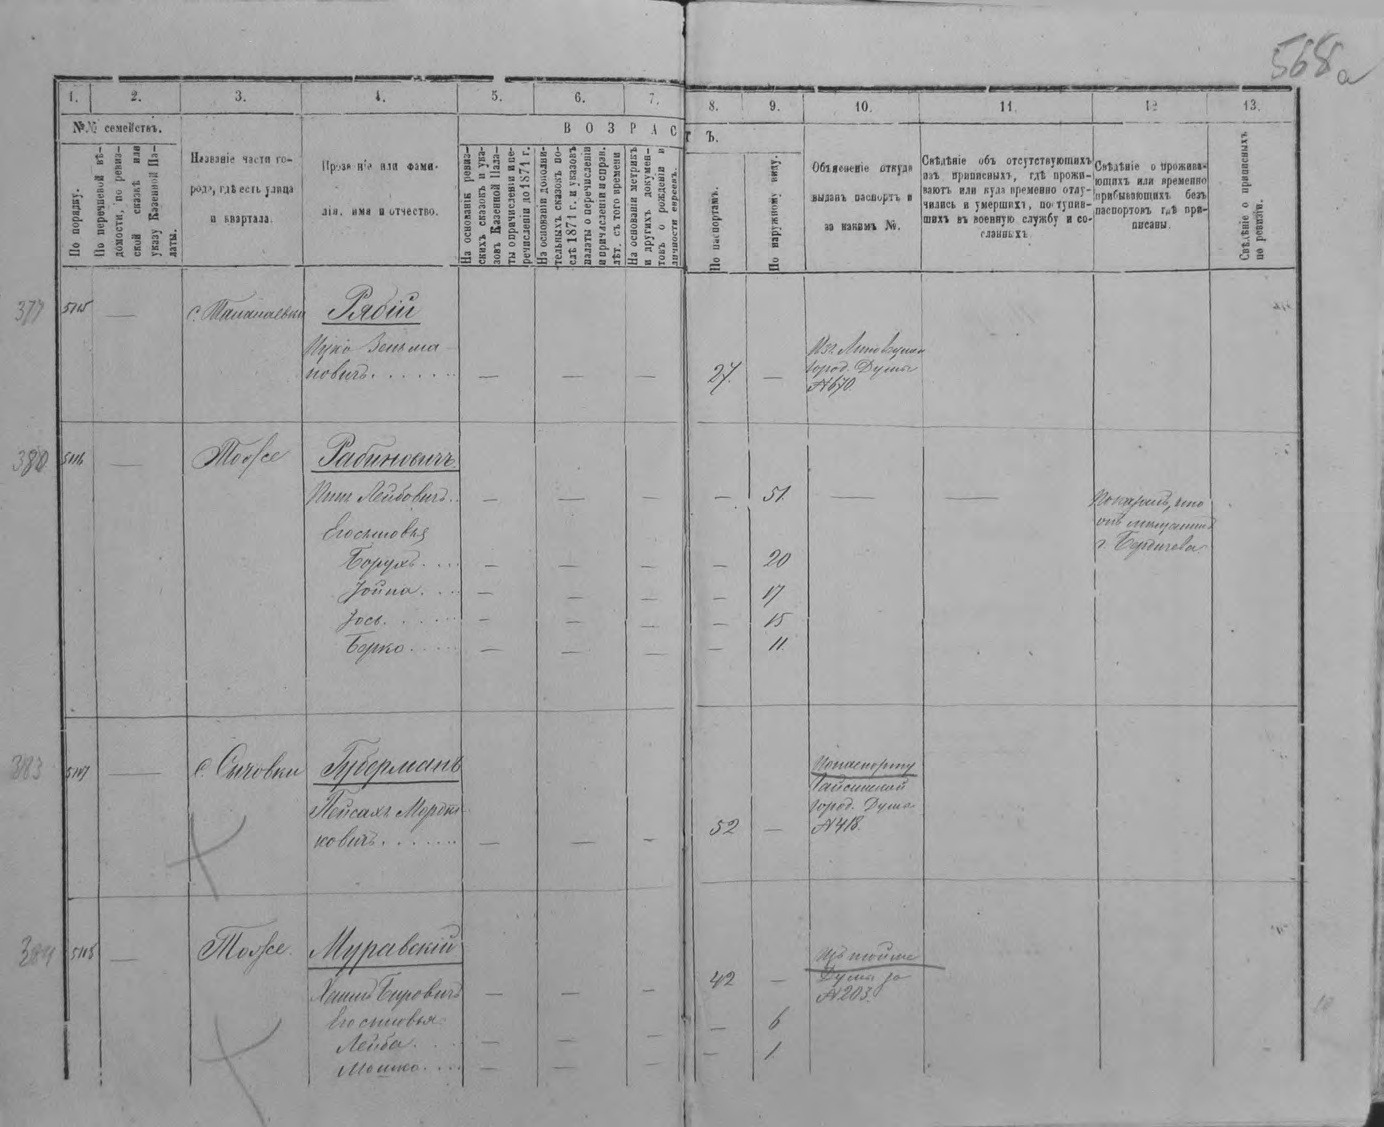 568 а
1. 2. 3. 4. 5. 6. 7. 8. 9. 10. 11. 12 13.
№№ семействъ.
По порядку.
По перечневой вѣ-
домости, по ревиз-
ской сказкѣ или
указу Казенной Па-
латы.
Названіе части го-
рода, гдѣ есть улица
и квартала.
Прозваніе или фами-
лія, имя и отчество.
ВОЗРАСТЪ.
На основаніи ревиз-
скихъ сказокъ и ука-
зовъ Казенной Пала-
ты о причисленіи и пе-
речисленіи до 1871 г.
На основаніи дополни-
тельныхъ сказокъ по-
слѣ 1871 г. и указовъ
палаты о перечисленіи
и причисленіи и справ.
лѣт. съ того времени
На основаніи метрикъ
и другихъ докумен-
товъ о рожденіи и
личности евреевъ.
По паспортамъ.
По наружному виду.
Объясненіе откуда
выданъ паспортъ и
за какимъ №.
Свѣдѣніе объ отсутствующихъ
изъ приписныхъ, гдѣ прожи-
ваютъ или куда временно отлу-
чились и умершихъ, поступив-
шихъ въ военную службу и со-
сланныхъ.
Свѣдѣніе о прожива-
ющихъ или временно
прибывающихъ безъ
паспортовъ гдѣ при-
писаны.
Свѣдѣніе о приписныхъ
по ревизіи.
377 5115 — Рябій
— — — 27. —
город. Думы
№ 670.
380 5116 — Тоже Рабиновичъ
Лейбовичъ — — — — 51. — —
Его сыновья
г. Бердичева
Борухъ — — — — 20
Іойна — — — — 17
Іось — — — — 15
Берко — — — — 11
383 5117 — с. Сычовки Губерманъ
По паспорту
Гайсинской
город. Думы
№ 418.
Пейсахъ Мордко
ковичъ — — — 52 —
384 5118 — Тоже Муравскій
42 —
Думы за
№ 203.
— — —
Его сыновья — 6
Лейба — — — — 1
Мошко — — —